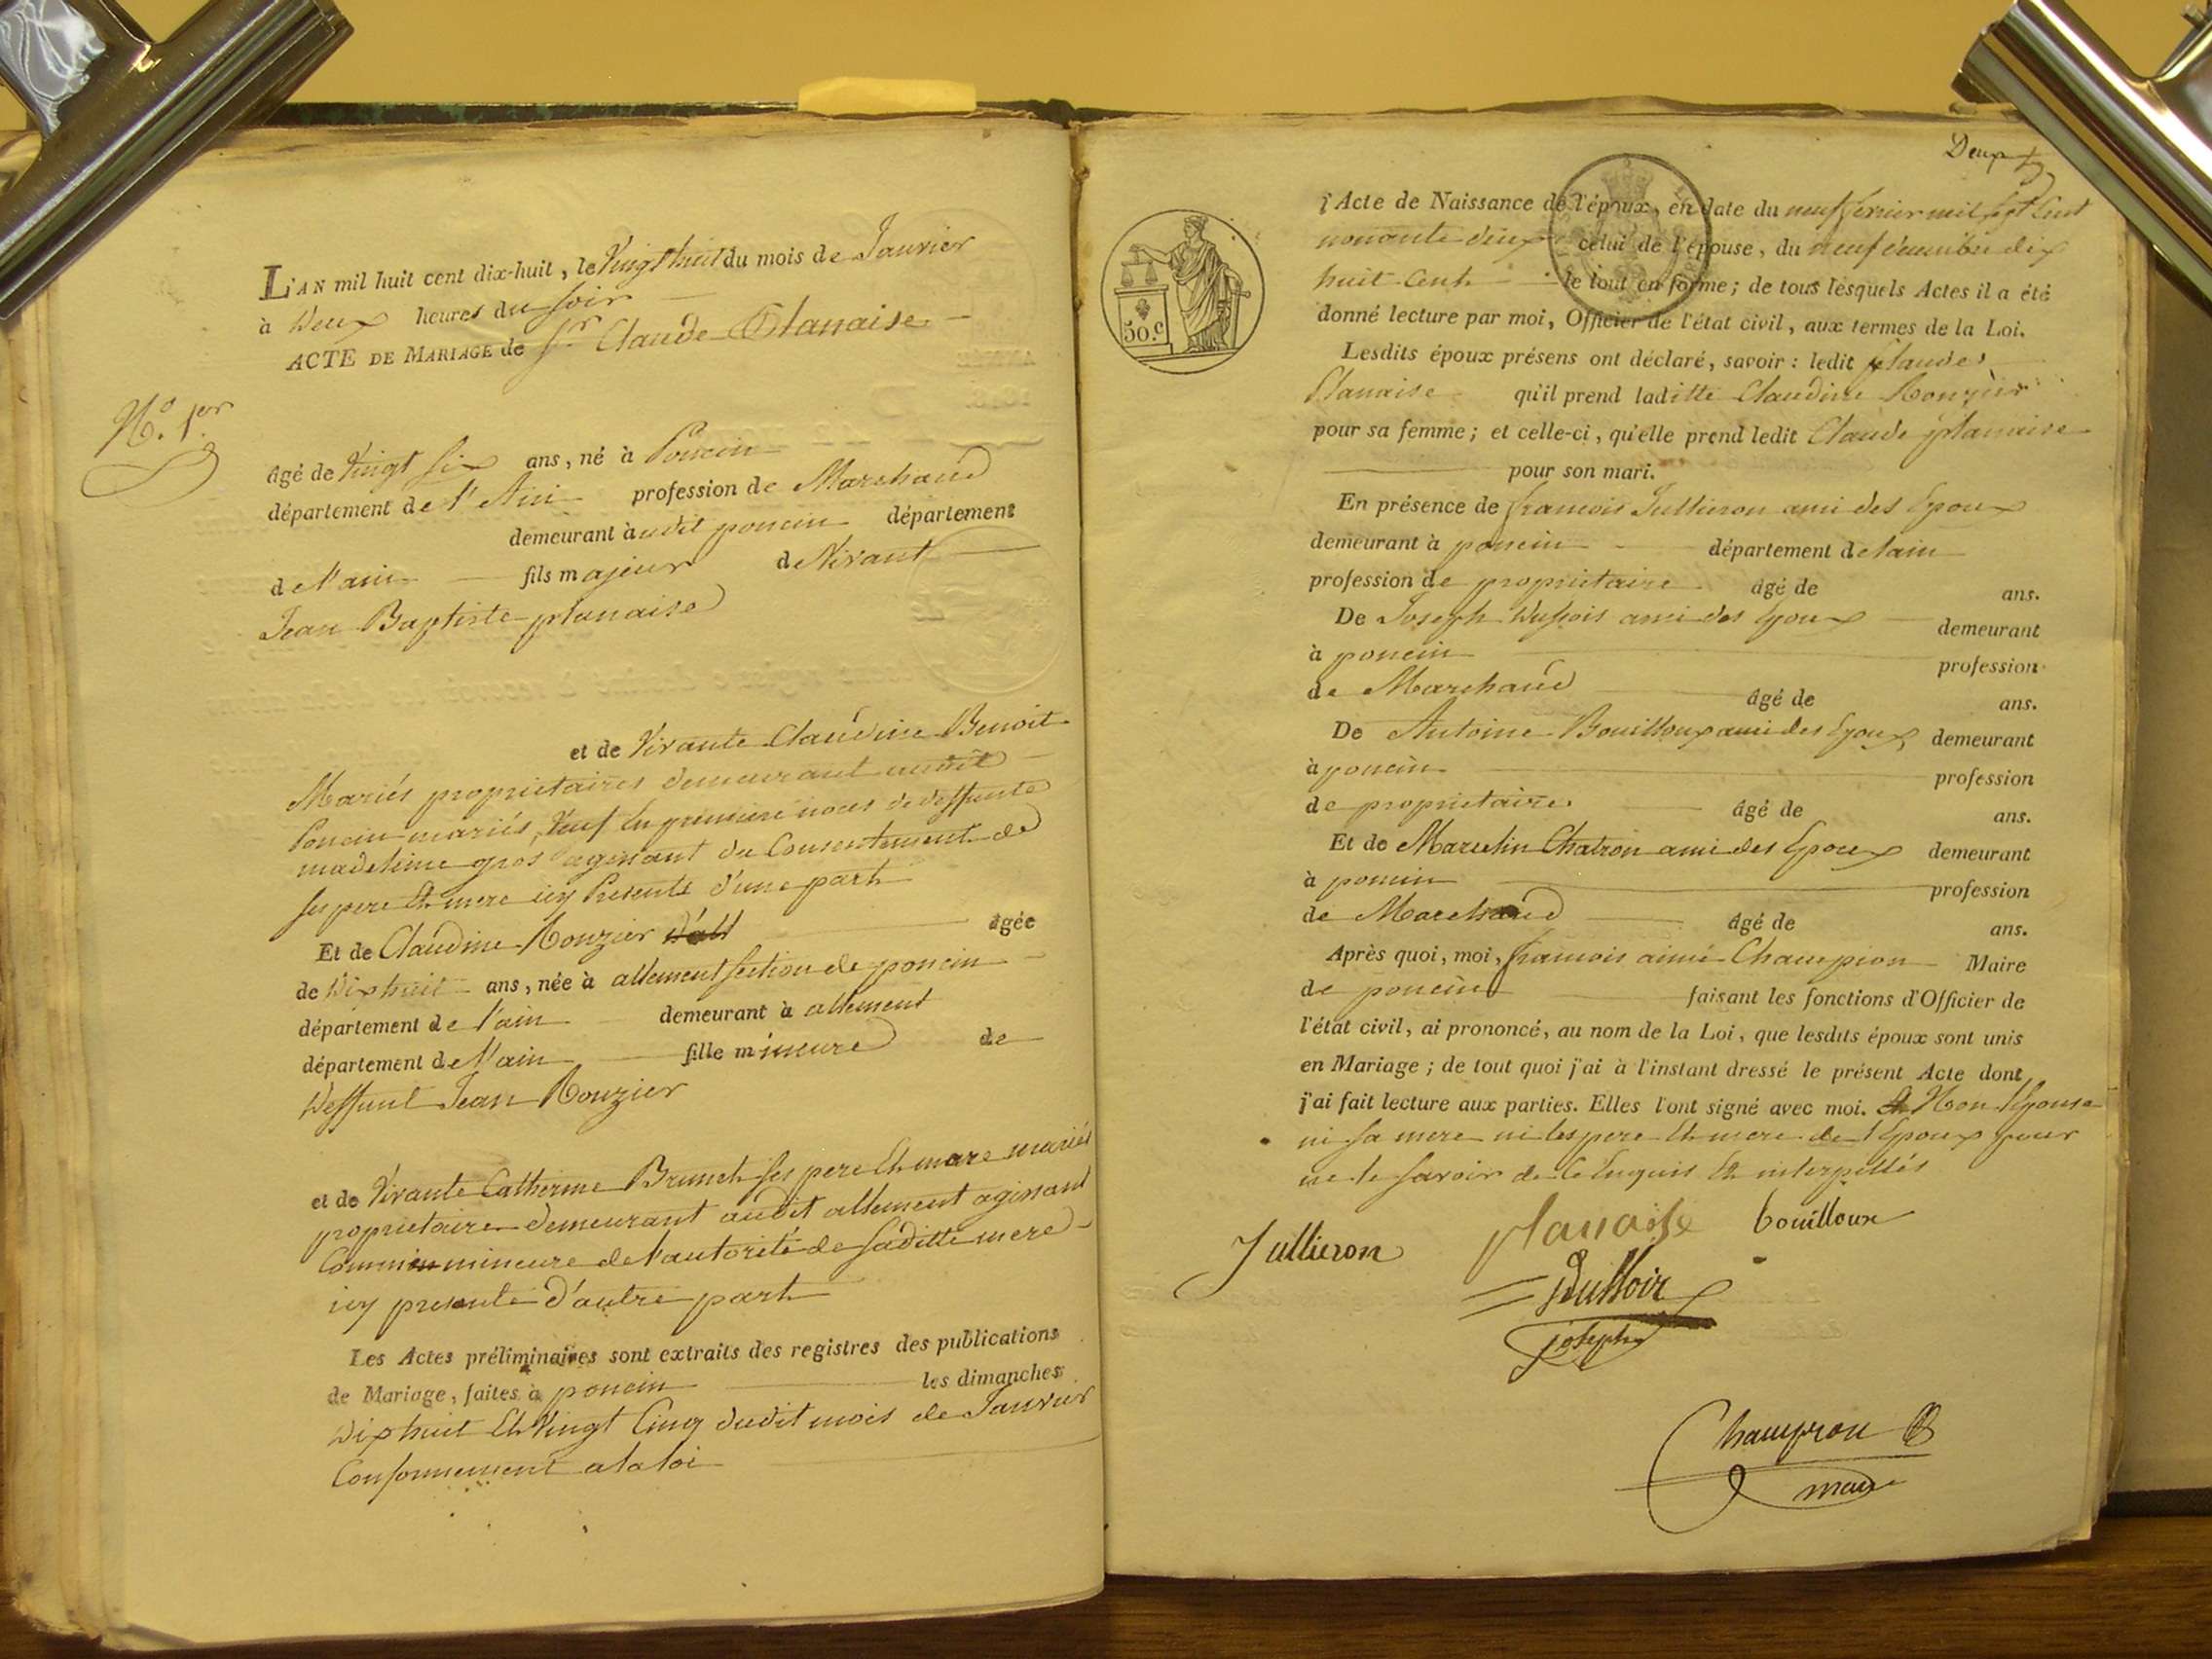 L'AN mil huit cent dix-huit, le Vingt huit du mois de Janvier
à Deux heures du soir
ACTE DE MARIAGE de Sr Claude Planaise
N.o 1.er
âgé de Vingt six ans, né à Poncin
département de l'Ain profession de Marchand
demeurant à udit poncin département
de l'ain fils majeur de Vivant
Jean Baptiste planaise
et de Vivante Claudine Benoit
Mariés proprietaires demeurant audit
Poncin mariés, Veuf En premiere noces de deffunte
madeleine gros agissant du Consentement de
ses pere Et mere icy Presents d'une part
Et de Claudine Rouzier âgée
de Dixhuit ans, née à allement section de poncin
département de l'ain demeurant à allement
département de l'ain fille mineure de
Deffunt Jean Rouzier
et de Vivante Catherine Brunet ses pere Et mere mariés
proprietaires demeurant audit allement agissant
Comme mineure de l'autorité de saditte mere
icy presente d'autre part
Les Actes préliminaires sont extraits des registres des publications
de Mariage, faites à poncin les dimanches
Dixhuit Et Vingt Cinq dudit mois de Janvier
Conformement a la loi
Deux
50.c
l'Acte de Naissance de l'époux, en date du neuf fevrier mil sept Cent
nonante deux celui de l'épouse, du neuf decembre dix
huit Cent le tout en forme; de tous lesquels Actes il a été
donné lecture par moi, Officier de l'état civil, aux termes de la Loi.
Lesdits époux présens ont déclaré, savoir: ledit Claude
Planaise qu'il prend laditte Claudine Rouzier
pour sa femme; et celle-ci, qu'elle prend ledit Claude planaise
pour son mari.
En présence de francois Jullieron ami des Epoux
demeurant à poncin département de lain
profession de proprietaire âgé de ans.
De Joseph Dussoir ami des Epoux demeurant
à poncin profession
de Marchand âgé de ans.
De Antoine Bouilloux ami des Epoux demeurant
à poncin profession
de proprietaire âgé de ans.
Et de Marcelin Chatron ami des Epoux demeurant
à poncin profession
de Marchand âgé de ans.
Après quoi, moi, francois aimé Champion Maire
de poncin faisant les fonctions d'Officier de
l'état civil, ai prononcé, au nom de la Loi, que lesdits époux sont unis
en Mariage; de tout quoi j'ai à l'instant dressé le présent Acte dont
j'ai fait lecture aux parties. Elles l'ont signé avec moi. Non l'Epouse
ni sa mere ni les pere Et mere de l'Epoux pour
ne le savoir de Ce Enquis Et interpellés
Jullieron planaise bouilloux
Dussoir
joseph
Champion
maire